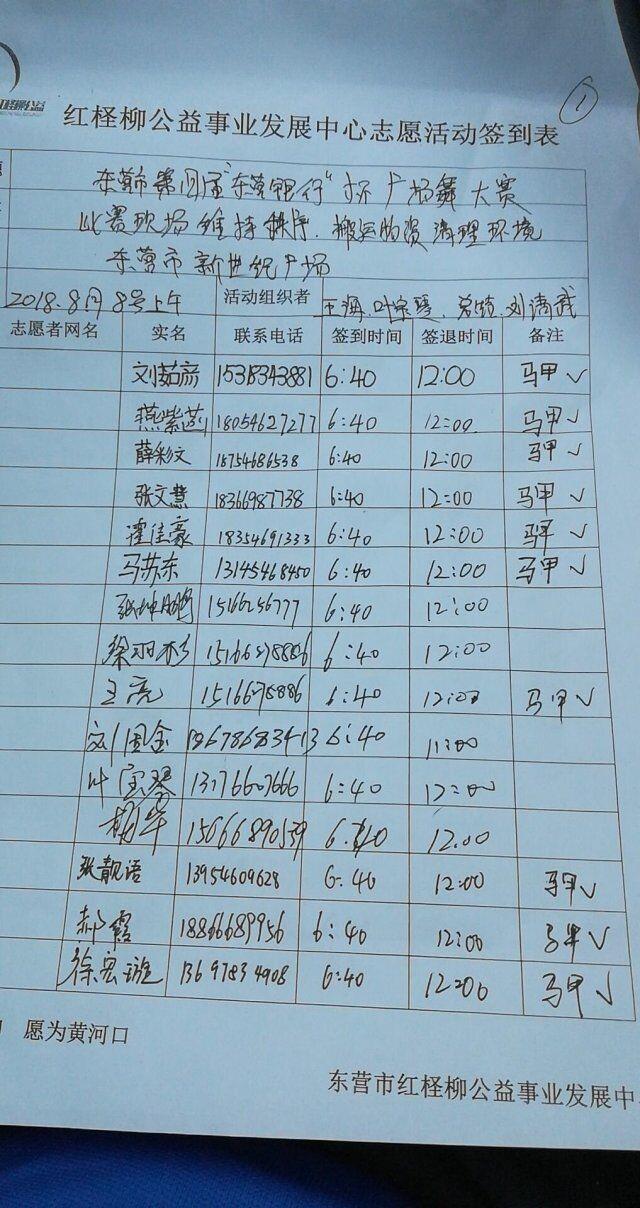 ①
红柽柳公益事业发展中心志愿活动签到表
东营市第四届“东营银行”杯广场舞大赛
比赛现场维持秩序、搬运物资清理环境
东营市新世纪广场
2018.8月8号上午 活动组织者 王海.叶宝琴. 刘清武
志愿者网名 实名 联系电话 签到时间 签退时间 备注
刘茹彦 15315343881 6:40 12:00 马甲√
燕紫燕 18054627277 6:40 12:00 马甲√
薛彩文 18754686538 6:40 12:00 马甲√
张文慧 18366987738 6:40 12:00 马甲√
霍佳豪 18354691333 6:40 12:00 马甲√
马苏东 13145468450 6:40 12:00 马甲√
张坤鹏 15166256777 6:40 12:00
徐羽杉 6:40 12:00
王亮 6:40 12:00 马甲√
刘国金 6:40 11:00
叶宝琴 13176607666 6:40 12:00
胡华 15066890539 6.40 12.00
张靓语 13954609628 6.40 12:00 马甲√
郝霞 18866689956 6:40 12:00 马甲√
徐宏璇 13697834908 6:40 12:00 马甲√
愿为黄河口
东营市红柽柳公益事业发展中